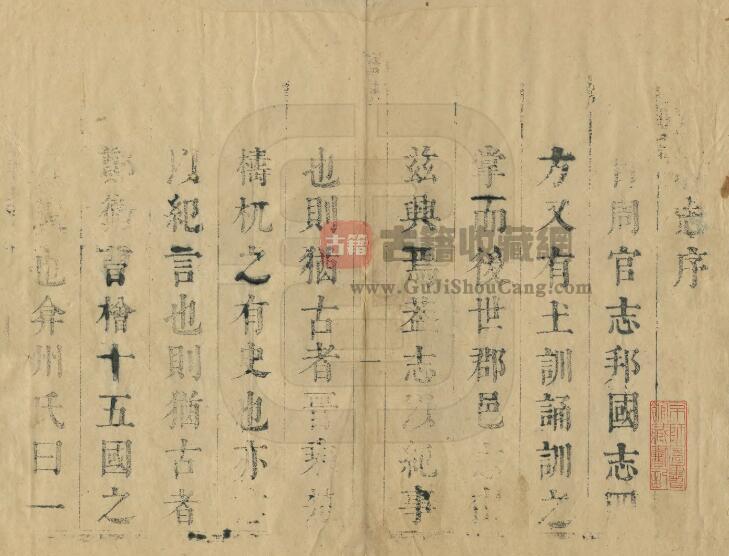 志序
周官志邦國志四
方又有土訓誦訓之
掌而後世郡邑
茲興焉蓋志以紀事
也則猶古者晉乘
檮杌之有史也亦
以紀言也則猶古者
鄭衛曹檜十五國之
也弇州氏曰一
古籍
古籍收藏網
www.GuJiShouCang.com